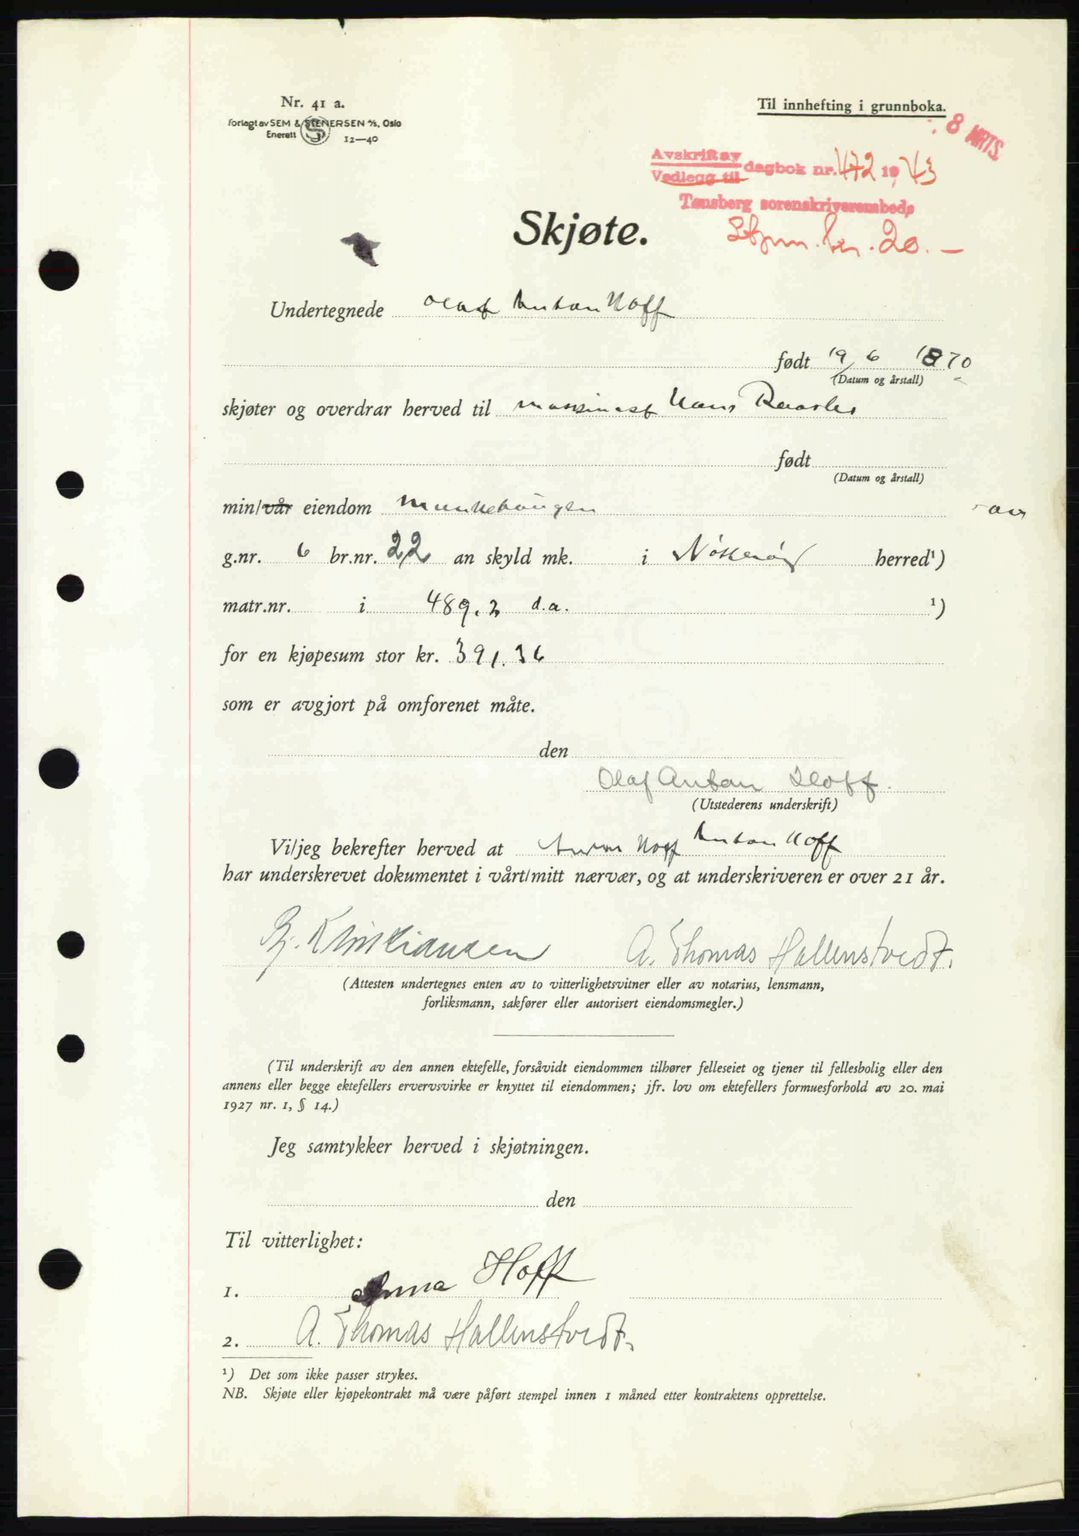 Nr. 41 a.
Forlagt av SEM & STENERSEN A/S, Oslo
Enerett 12—40
Til innhefting i grunnboka.
8 MRTS.
Avskrift av
Vedlegg til dagbok nr. 472 19 43
Tønsberg sorenskriverembede
kr. 20.—
Skjøte.
Undertegnede Olaf Anton Hoff
født 19/6 1870
(Datum og årstall)
skjøter og overdrar herved til maskinist Hans
født
(Datum og årstall)
min/vår eiendom Munkehaugen
g.nr. 6 br.nr. 22 an skyld mk. i Nøtterøy herred¹)
matr.nr. i 489.2 d.a. ¹)
for en kjøpesum stor kr. 391.36
som er avgjort på omforenet måte.
den
Olaf Anton Hoff.
(Utstederens underskrift)
Vi/jeg bekrefter herved at Anton Hoff Anton Hoff
har underskrevet dokumentet i vårt/mitt nærvær, og at underskriveren er over 21 år.
Kristiansen A. Thomas Hallenstvedt.
(Attesten undertegnes enten av to vitterlighetsvitner eller av notarius, lensmann,
forliksmann, sakfører eller autorisert eiendomsmegler.)
(Til underskrift av den annen ektefelle, forsåvidt eiendommen tilhører felleseiet og tjener til fellesbolig eller den
annens eller begge ektefellers ervervsvirke er knyttet til eiendommen; jfr. lov om ektefellers formuesforhold av 20. mai
1927 nr. 1, § 14.)
Jeg samtykker herved i skjøtningen.
den
Til vitterlighet:
1. Anna Hoff
2. A. Thomas Hallenstvedt.
¹) Det som ikke passer strykes.
NB. Skjøte eller kjøpekontrakt må være påført stempel innen 1 måned etter kontraktens opprettelse.